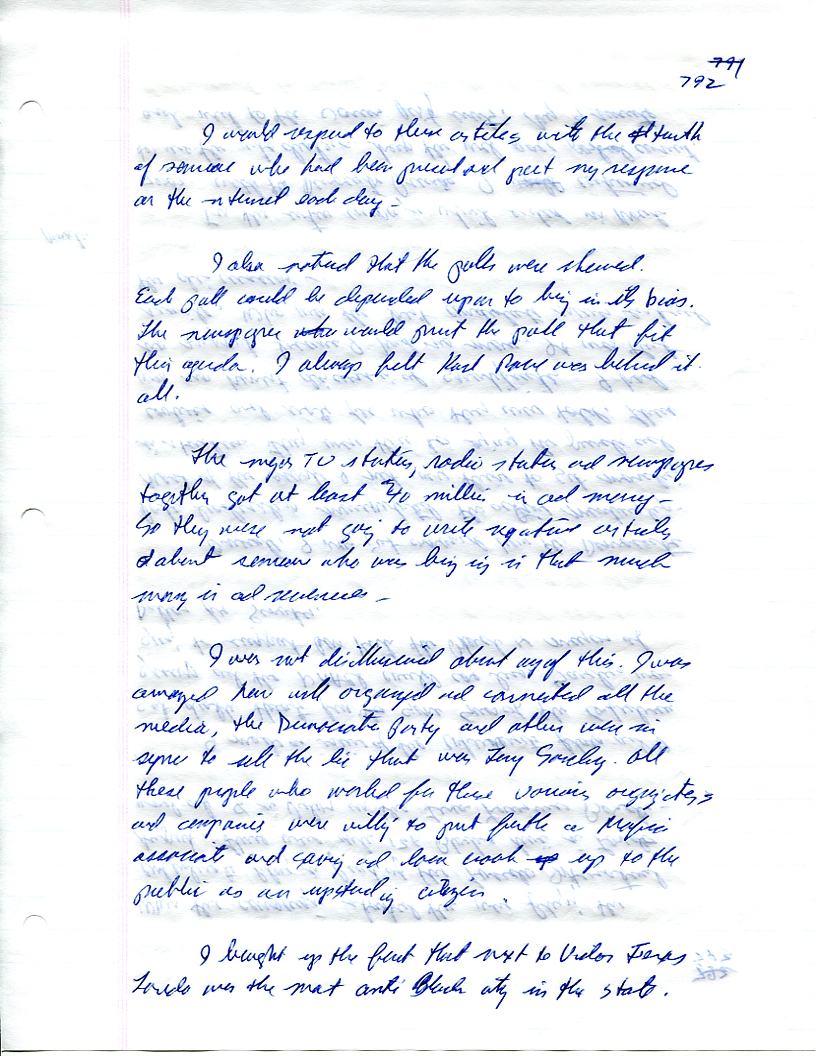 791
792
I would respond to these articles with the truth
of someone who had been present and post my response
on the internet each day -
I also noticed that the polls were skewed.
Each poll could be depended upon to bring in its bias.
The newspaper would print the poll that fit
this agenda. I always felt Karl Rove was behind it
all.
The major TV stations, radio stations and newspapers
together got at least $40 million in ad money -
So they were not going to write negative articles
about someone who was bringing in that much
money in ad revenues -
I was not disillusioned about any of this. I was
amazed how well organized and connected all the
media, the Democratic Party and others were in
sync to sell the lie that was Tony Sanchez. All
these people who worked for these various organizations
and companies were willing to put forth a Mafia
associate and saving and loan crook up to the
public as an upstanding citizen.
I brought up the fact that next to Vidor Texas
Laredo was the most anti Black city in the state.